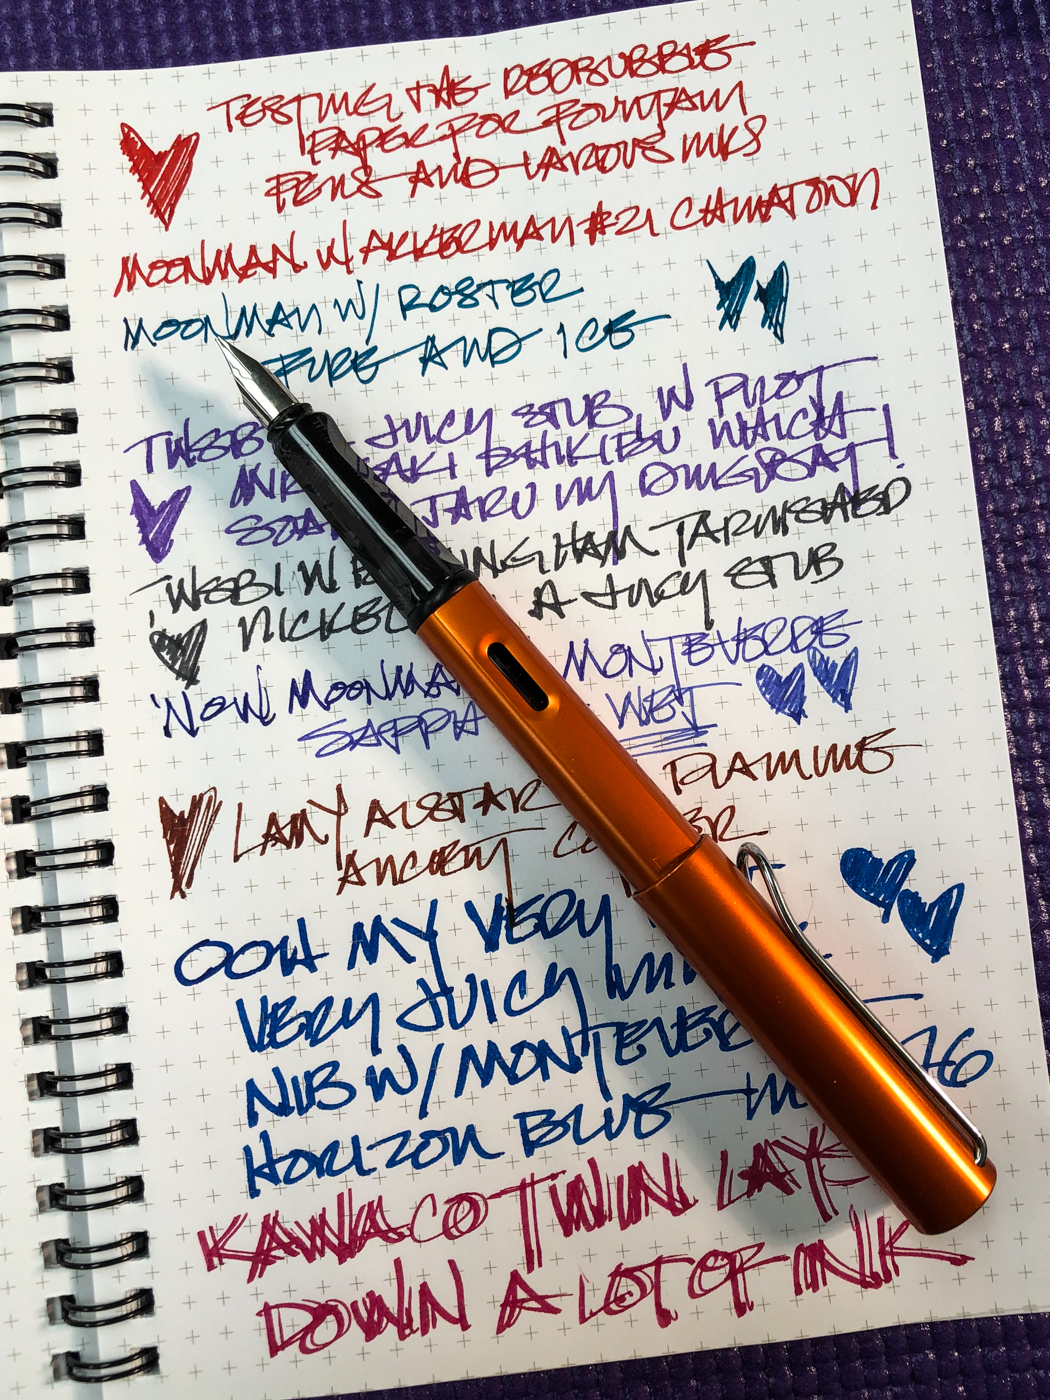 TESTING THE REDBUBBLE
PAPER FOR FOUNTAIN
PENS AND VAROUS INKS
MOONMAN W/ AKKERMAN #21 CHINATOWN
MOONMAN W/ ROSTER
FIRE AND ICE
TWSB JUICY STUB W PILOT
MURASAKI SHIKIBU WHICH
MY OMGSBAY!
TWSBI W B NINGHAM TARNISHED
NICKEL A JUICY STUB
NOW MOONMA MONTEVERDE
SAPPH WET
LAMY ALSTAR DIAMINE
ANCIENT CO ER
OOH MY VERY
VERY JUICY
NIB W/ MONTEVER
HORIZON BLUE M 76
KAWACO TWIN LAYS
DOWN A LOT OF INK